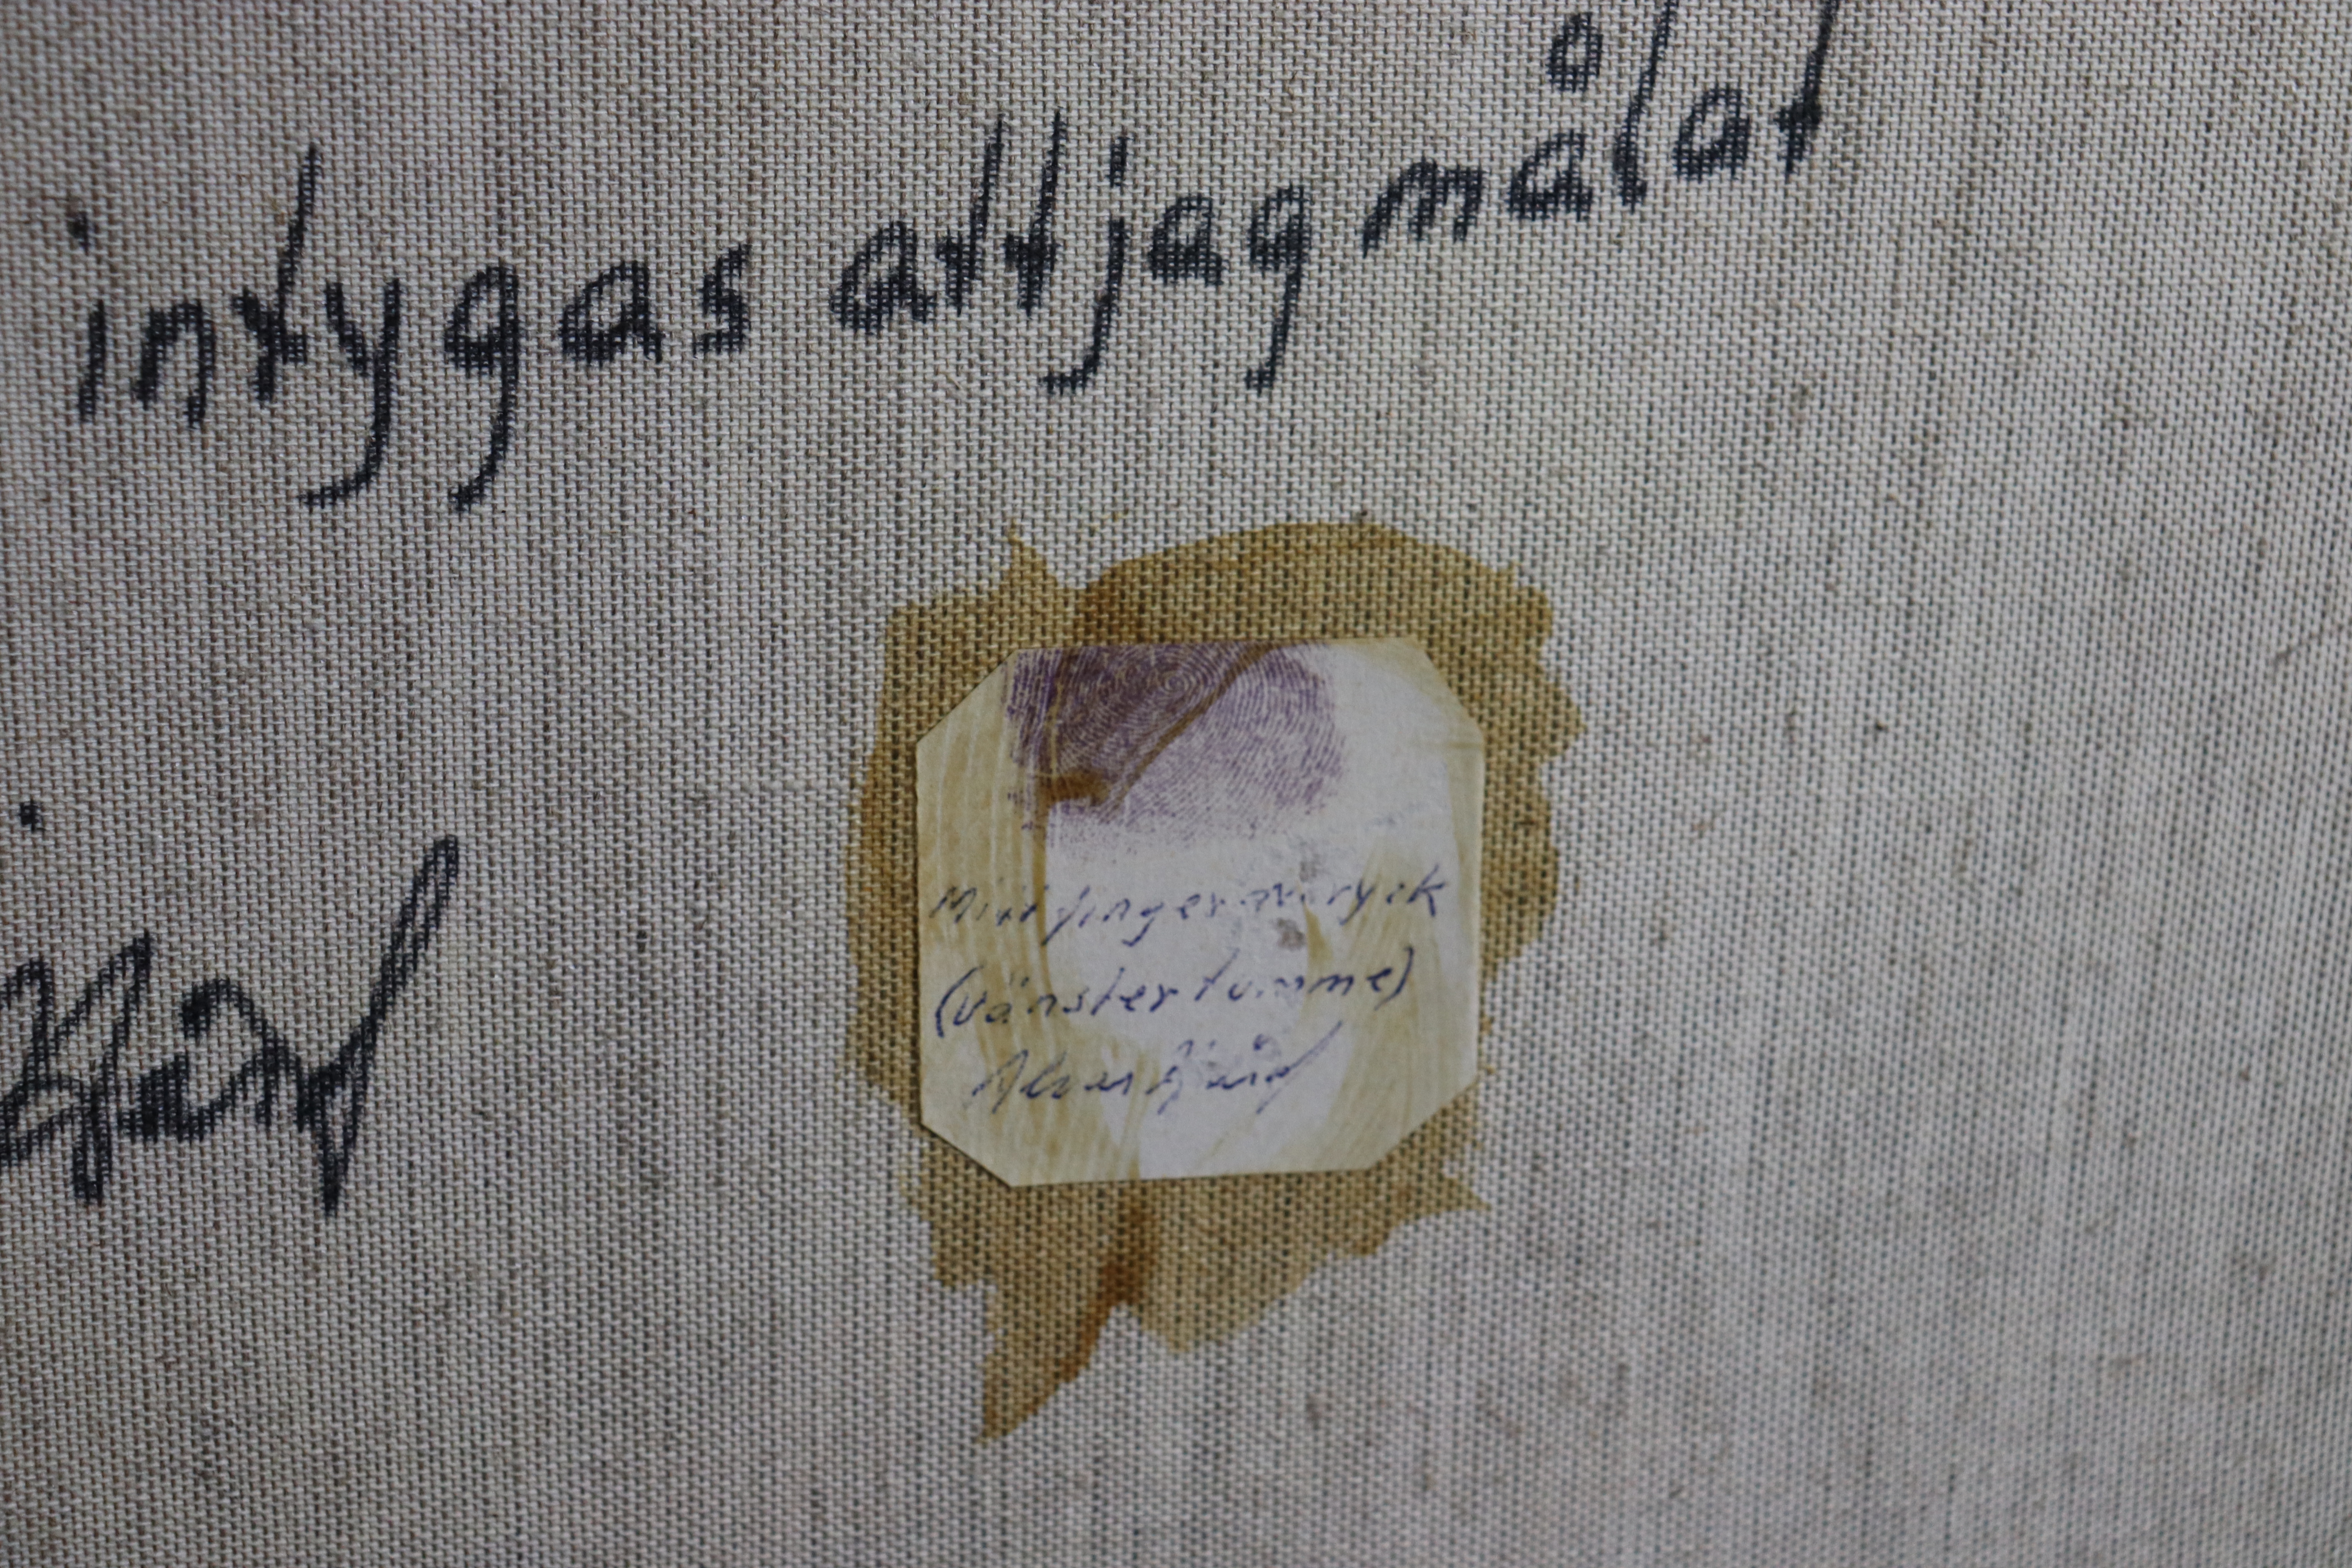 intygas att jag målat
Mitt fingeravtryck
(vänster tumme)
Alvar Jürlof